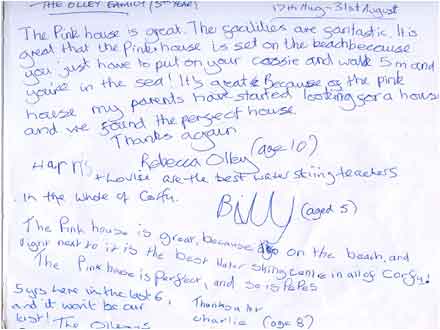 THE OLLEY FAMILY (5TH YEAR) 17th Aug - 31st August
The Pink house is great. The facilities are fantastic. It is
great that the Pink house is set on the beach because
you just have to put on your cossie and walk 5m and
you're in the sea! It's great & Because of the pink
house my parents have started looking for a house
and we found the perfect house.
Thanks again
Rebecca Olley (age 10)
Harris
+ Lovise are the best water skiing teachers
in the whole of Corfu.
Billy (aged 5)
The Pink house is great, because on the beach, and
right next to it is the best Water Skiing Centre in all of Corfu.
The Pink house is perfect, and so is
5 yrs here in the last 6,
and it won't be our
last! The Olleys
Thanks alot
charlie (age 8)